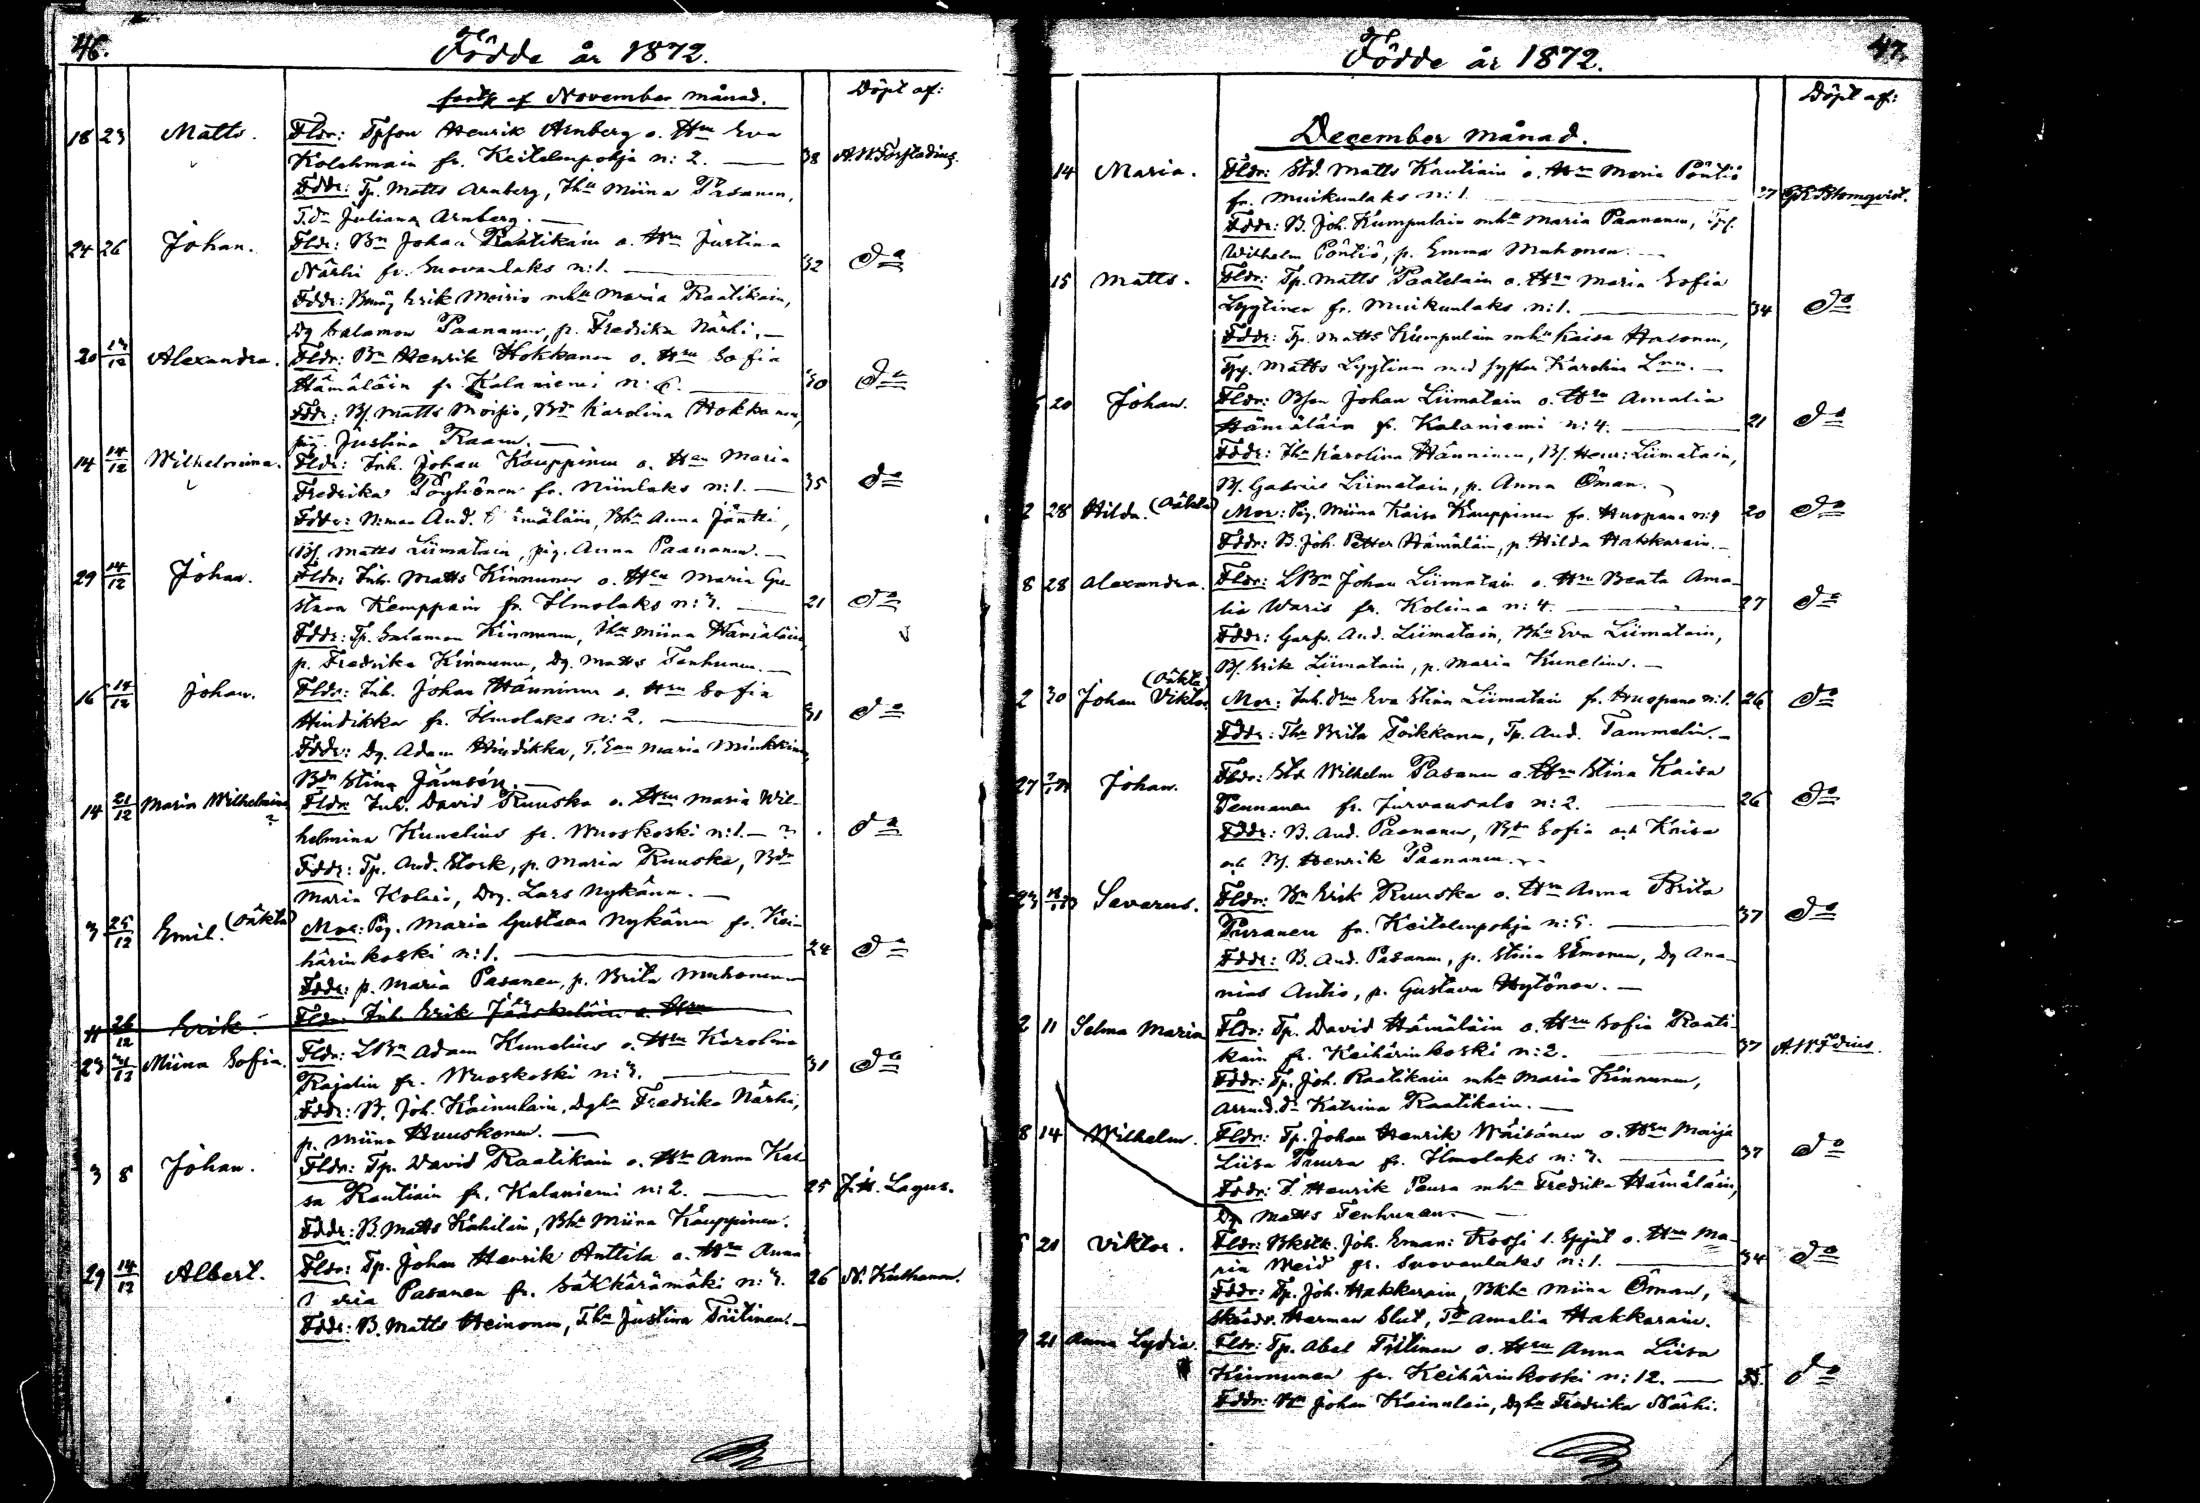 46.
Födde år 1872.
forts af November månad.
Döpt af:
18 23 Matts. Fldr: Tpson Henrik Arnberg o. Hru Eva
Kolehmain fr. Keitelenpohja n: 2. — 38
Fddr: Tp. Matts Arnberg, Miina Pasanen,
Juliana Arnberg. —
24 26 Johan. Fldr: Bn Johan Raatikain o. Hru Justina
Närhi fr. Suovanlaks n: 1. — 32 do
Fddr: Erik Moisio mhu Maria Raatikain,
Dg Salamon Paananen, p. Fredrika Närhi. —
20 Alexandra. Fldr: Bn Henrik Hokkanen o. Hru Sofia
Hämäläin fr. Kalaniemi n: 6. — 30 do
Fddr: Bs. Matts Moisio, Karolina Hokkanen,
pig. Justina Raam. —
14 14/12 Wilhelmina. Fldr: Inh. Johan Kauppinen o. Hru Maria
Fredrika Pöyhönen fr. Niinilaks n: 1. — 35 do
Fddr: And. Hämäläin, Bhu Anna Jäntti,
Bs. Matts Liimatain, pig. Anna Paananen. —
29 14/12 Johan. Fldr: Inh. Matts Kinnunen o. Hru Maria Gu-
stava Kemppain fr. Ilmolaks n: 3. — 21 do
Fddr: Tp. Salamon Kinnunen, Miina Hämäläin,
p. Fredrika Kinnunen, Dg. Matts Tenhunen. —
16 14/12 Johan. Fldr: Inh. Johan Hänninen o. Hru Sofia
Hindikka fr. Ilmolaks n: 2. — 31 do
Fddr: Dg. Adam Hindikka, Maria Minkkinen,
Stina Jämsén. —
14 21/12 Maria Wilhelmina Fldr: Inh. David Ruuska o. Hru Maria Wil-
?
helmina Kunelius fr. Wuoskoski n: 1. — ? do
Fddr: Tp. And. Stork, p. Maria Ruuska, Bdr
Maria Kolari, Dg. Lars Nykänen. —
3 25/12 Emil. (oäkta) Mor: Pig. Maria Gustava Nykänen fr. Kei-
härinkoski n: 1. — 24 do
Fddr: p. Maria Pasanen, p. Brita Muhonen —
26/12 Erik. Fldr: Inh. Erik Jääskeläin o. Hru
23 Miina Sofia. Fldr: LBn Adam Kunelius o. Hru Karolina
Rajalin fr. Wuoskoski n: 3. — 31 do
Fddr: B. Joh. Kainulain, Fredrika Närhi,
p. Miina Huuskonen. —
3 8 Johan. Fldr: Tp. David Raatikain o. Hru Anna Kai-
sa Rautiain fr. Kalaniemi n: 2. — 25 J. H. Lagus.
Fddr: B. Matts Kahilain, Bhu Miina Kauppinen.
29 14/12 Albert. Fldr: Tp. Johan Henrik Anttila o. Hru Anna
Pasanen fr. Säkkärämäki n: 3. 26
Fddr: B. Matts Heinonen, Justina Tiitinen. —
47.
Födde år 1872.
Döpt af:
December månad.
14 Maria. Fldr: Std. Matts Rautiain o. Hru Maria Pöntiö
fr. Muikunlaks n: 1. — 27 Blomqvist.
Fddr: B. Joh. Kumpulain mhu Maria Paananen,
Wilhelm Pöntiö, p. Emma Muhonen. —
15 Matts. Fldr: Tp. Matts Paatelain o. Hru Maria Sofia
Lyytinen fr. Muikunlaks n: 1. — 34 do
Fddr: Tp. Matts Kumpulain mhu Kaisa
Matts Lyytinen med syster Karolina —
20 Johan. Fldr: Bson Johan Liimatain o. Hru Amalia
Hämäläin fr. Kalaniemi n: 4. — 21 do
Fddr: Karolina Hänninen, Bs. Henr: Liimatain,
Bs. Gabriel Liimatain, p. Anna Öman. —
2 28 Hilda. (oäkta) Mor: Pig. Miina Kaisa Kauppinen fr. Huopana n: 4 20 do
Fddr: B. Joh. Petter Hämäläin, p. Hilda Hakkarain. —
8 28 Alexandra. Fldr: LBn Johan Liimatain o. Hru Beata Ama-
lia Waris fr. Kolima n: 4. — 27 do
Fddr: And. Liimatain, Bhu Eva Liimatain,
Bs. Erik Liimatain, p. Maria Kunelius. —
(oäkta)
2 30 Johan Viktor Mor: Inh. Eva Stina Liimatain fr. Huopana n: 1. 26 do
Fddr: Brita Toikkanen, Tp. And. Tammelin. —
27 Johan. Fldr: Std Wilhelm Pasanen o. Hru Stina Kaisa
Pennanen fr. Jurvansalo n: 2. — 26 do
Fddr: B. And. Paananen, Sofia och Kaisa
och Bs. Henrik Paananen. —
23 Severus. Fldr: Bn Erik Ruuska o. Hru Anna Brita
Puranen fr. Keitelenpohja n: 5. — 37 do
Fddr: B. And. Pasanen, p. Stina Simonen, Dg Ana-
nias Autio, p. Gustava Hytönen. —
2 11 Selma Maria Fldr: Tp. David Hämäläin o. Hru Sofia Raati-
kain fr. Keihärinkoski n: 2. — 37
Fddr: Tp. Joh. Raatikain mhu Maria Kinnunen,
Katrina Raatikain. —
8 14 Wilhelm. Fldr: Tp. Johan Henrik Wäisänen o. Hru Maija
Liisa Puura fr. Ilmolaks n: 3. — 37 do
Fddr: Henrik Puura mhu Fredrika Hämäläin,
Dg Matts Tenhunen. —
21 Viktor. Fldr: Joh. Eman: Rossi l. Spjut o. Hru Ma-
ria Meid fr. Suovanlaks n: 1. — 34 do
Fddr: Tp. Joh. Hakkarain, Miina Öman,
Herman Slut, Amalia Hakkarain.
9 21 Anna Lydia. Fldr: Tp. Abel Tiitinen o. Hru Anna Liisa
Kinnunen fr. Keihärinkoski n: 12. — 35 do
Fddr: Bn Johan Kainulain, Fredrika Närhi.